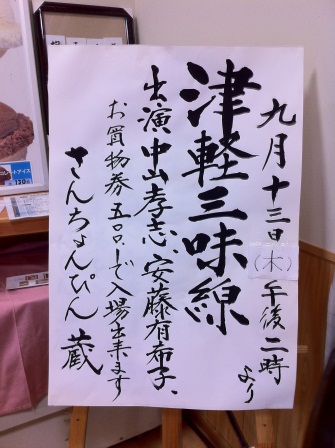 九月十三日(木)午後二時より
津軽三味線
出演 中山孝志、安藤有布子、
お買物券五〇〇円で入場出来ます
さんちょんぴん蔵